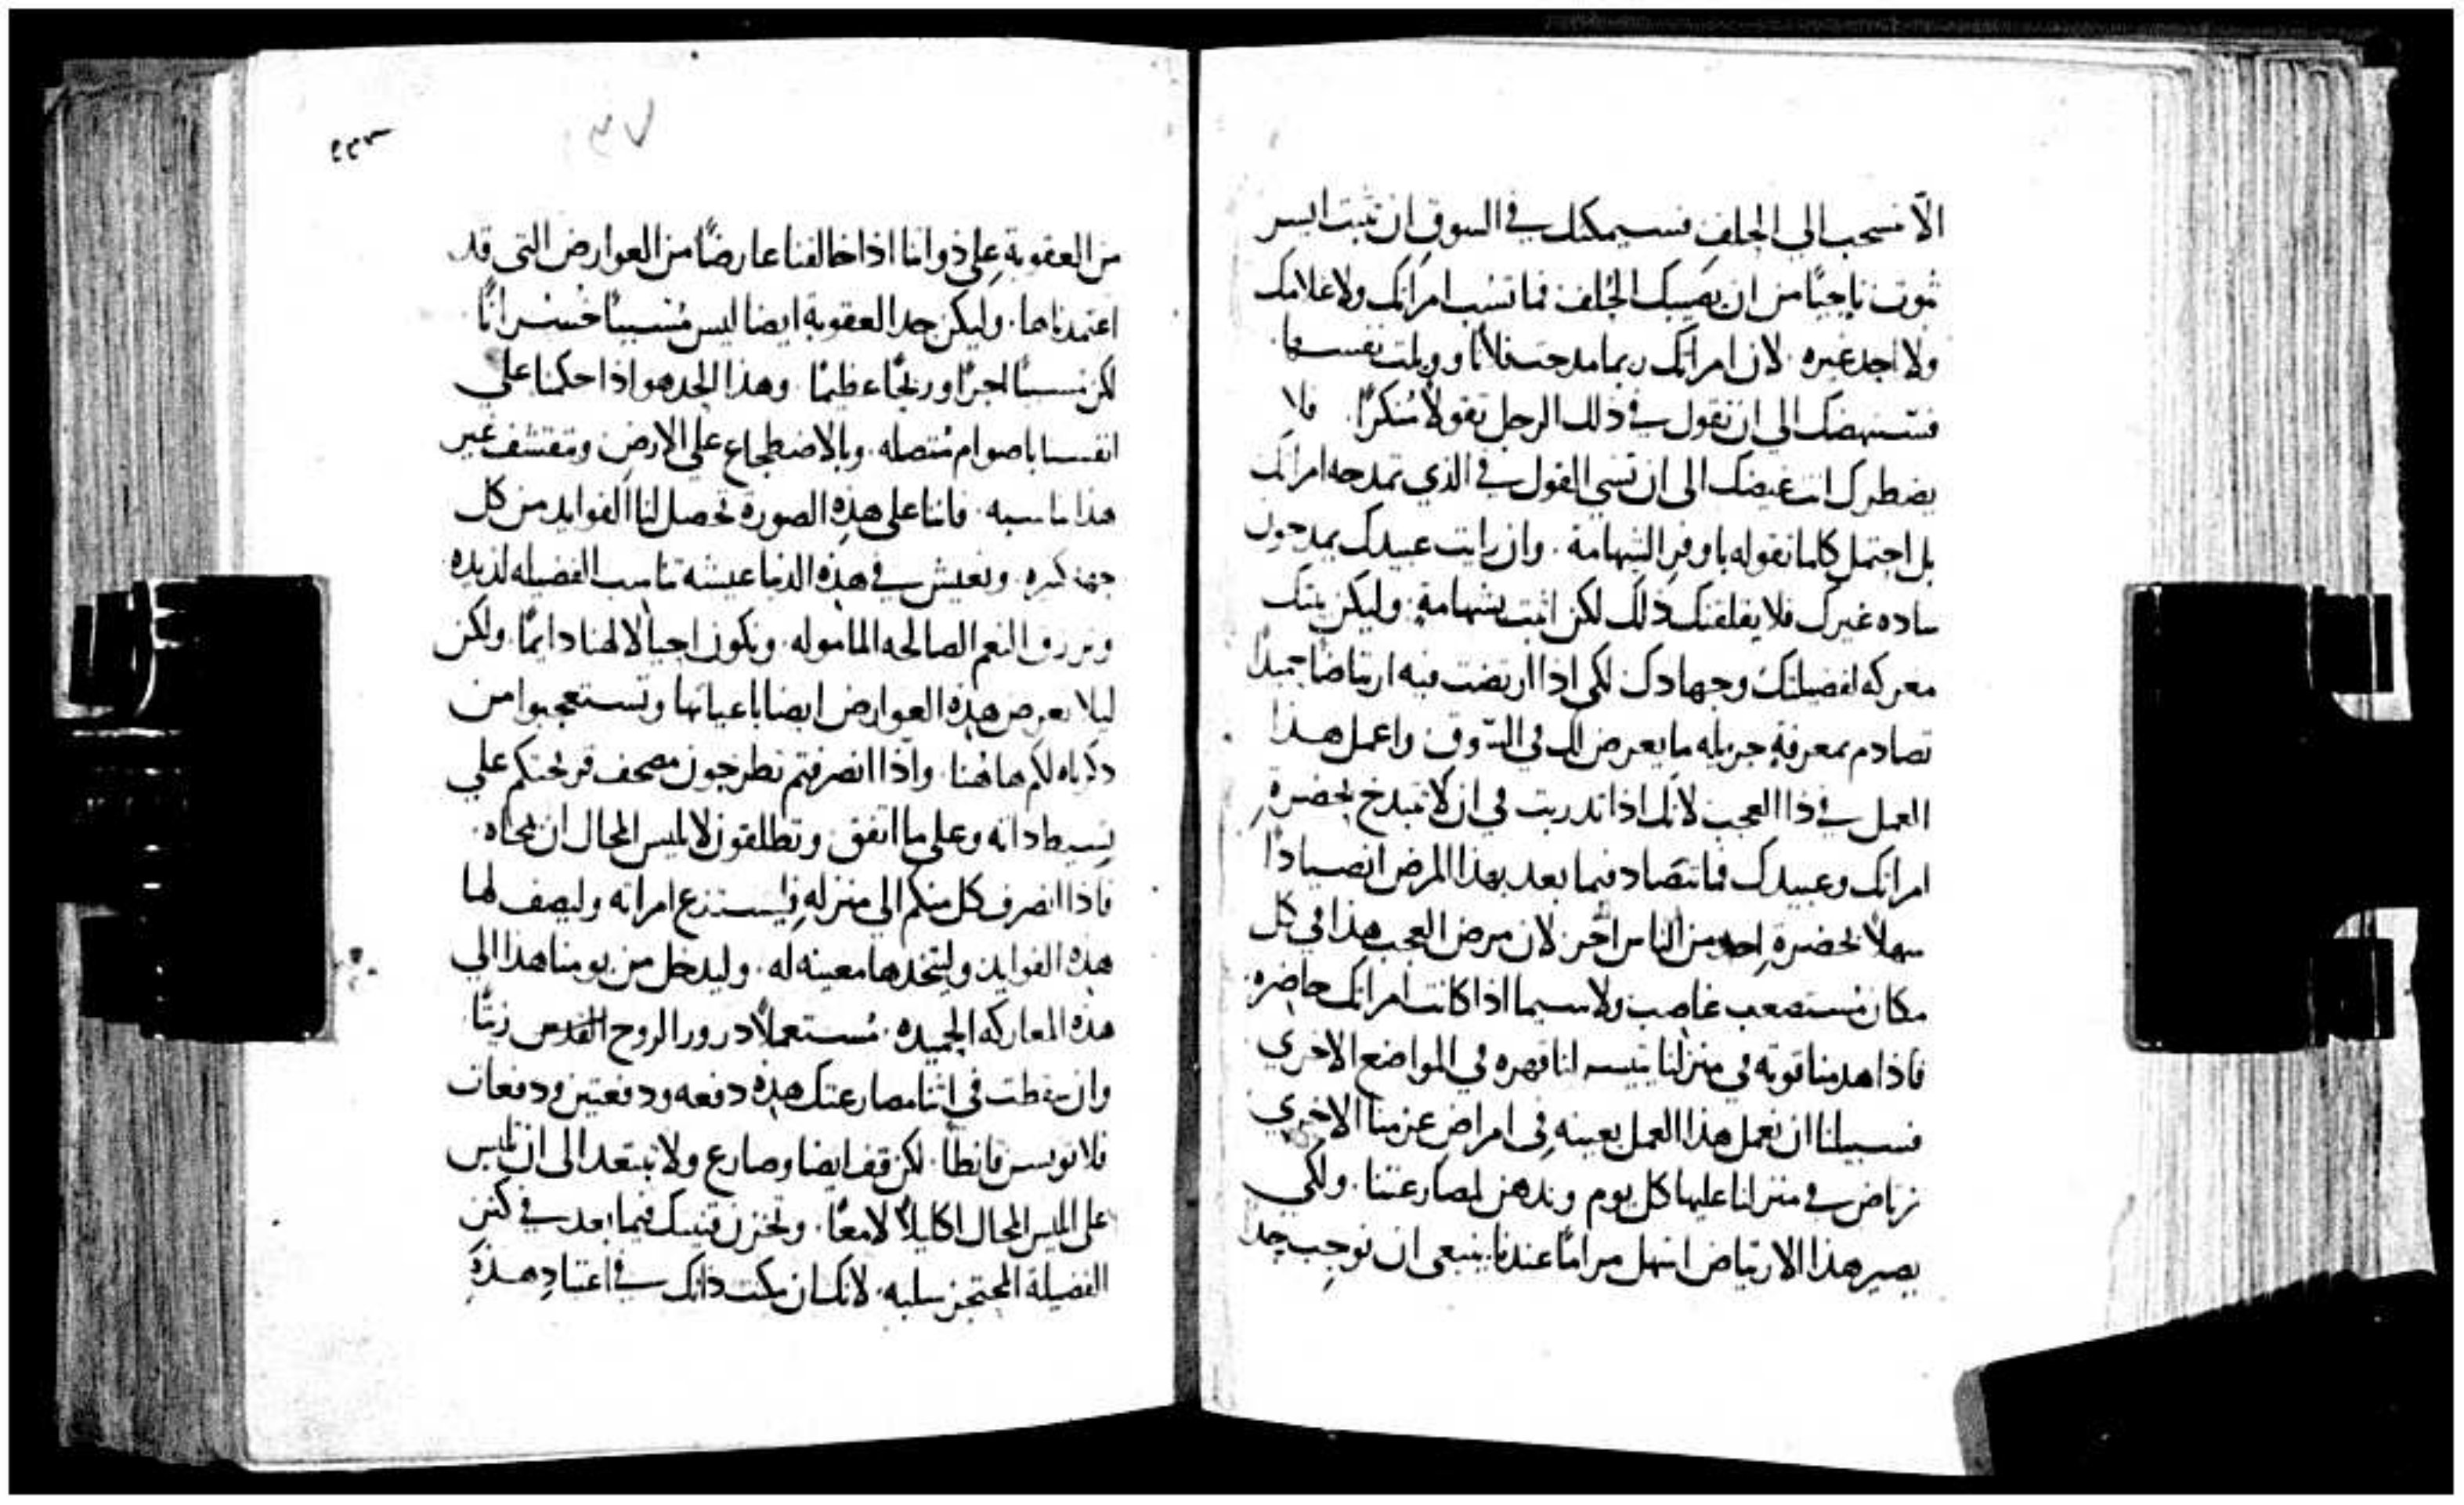 الّا تنسحب الي الحلف فسيمكنك في السوق ان تثبت ايسر
ثبوت ناجيًا من ان يصيبك الحلف فما تشب امراتك ولا غلامك
ولا احد غيره لان امراتك ربما مدحت فلانًا وويلت نفسها
فتستنهضك الي ان تقول في ذلك الرجل قولًا مُنكرًا فلا
يضطرك انت غيضك الى ان تسي القول في الذي تمدحه امراتك
بل احتمل كلما تقوله باوفر الشهامة وان رايت عبيدك يمدحون
ساده غيرك فلا يقلقنك ذلك لكن اثبت بشهامةٍ وليكن بيتك
معركه لفضيلتك وجهادك لكي اذا ارتضت فيه ارتياضا جميلًا
تصادم بمعرفةٍ جزيله ما يعرض لك في السّوق واعمل هذا
العمل في ذا العجب لانك اذا تدربت في ان لا تبذخ بحضرةِ
امراتك وعبيدك فما تتصاد فيما بعد بهذا المرض انصيادًا
سهلًا بحضرةِ احد من الناس اخر لان مرض العجب هذا في كل
مكان مُستصعب غاصب ولا سيما اذا كانت امراتك حاضره
فاذا هدمنا قوته في منزلنا تيسر لنا قهره في المواضع الاخري
فسبيلنا ان نعمل هذا العمل بعينه في امراض عزمنا الاخري
نرتاض في منزلنا عليها كل يوم وندهن لمصارعتنا ولكي
يصير هذا الارتياض اسهل مرامًا عندنا ينبغي ان نوجب حدًا
٢٢٣
٣٧
من العقوبة على ذواتنا اذا خالفنا عارضًا من العوارض التي قد
اعتمدناها وليكن حد العقوبة ايضا ليس مُسببًا خُسرانًا
لكن مسببًا اجرًا وربحًا عظيمًا وهذا الحد هو اذا حكمنا على
انفسنا باصوام مُتصله وبالاضطجاع على الارض وتقشف غير
هذا يناسبه فاننا على هذهِ الصورة تحصل لنا الفوايد من كل
جهة كثيره ونعيش في هذه الدنيا عيشه تناسب الفضيله لذيذه
ونرزق النعم الصالحه المأموله ونكون احبا لالهنا دايمًا ولكن
ليلا يعرض هذه العوارض ايضا باعيانها وتستعجبوا من
ذكرناه لكم هاهُنا واذا انصرفتم تطرحون مصحف قريحتكم علي
بسيط ذاته وعلي ما اتفق وتطلقون لابليس المحال ان يمحاه
فاذا انصرف كل منكم الي منزلهِ فليستنزع امراته وليصف لها
هذه الفوايد وليتخذها معينه له وليدخل من يومنا هذا الي
هذه المعاركه الحميده مُستعملًا درور الروح القدس زيتًا
وان سقطت في اثنا مصارعتك هذه دفعه ودفعتين ودفعات
فلا تويسن قانطًا لكن قف ايضا وصارع ولا تبتعد الى ان تلبس
على ابليس المحال اكليلًا لامعًا وتخزن قنيتك فيما بعد في كنز
الفضيلة المحتجز سلبه لانك ان مكنت ذاتك في اعتيادِ هذهِ